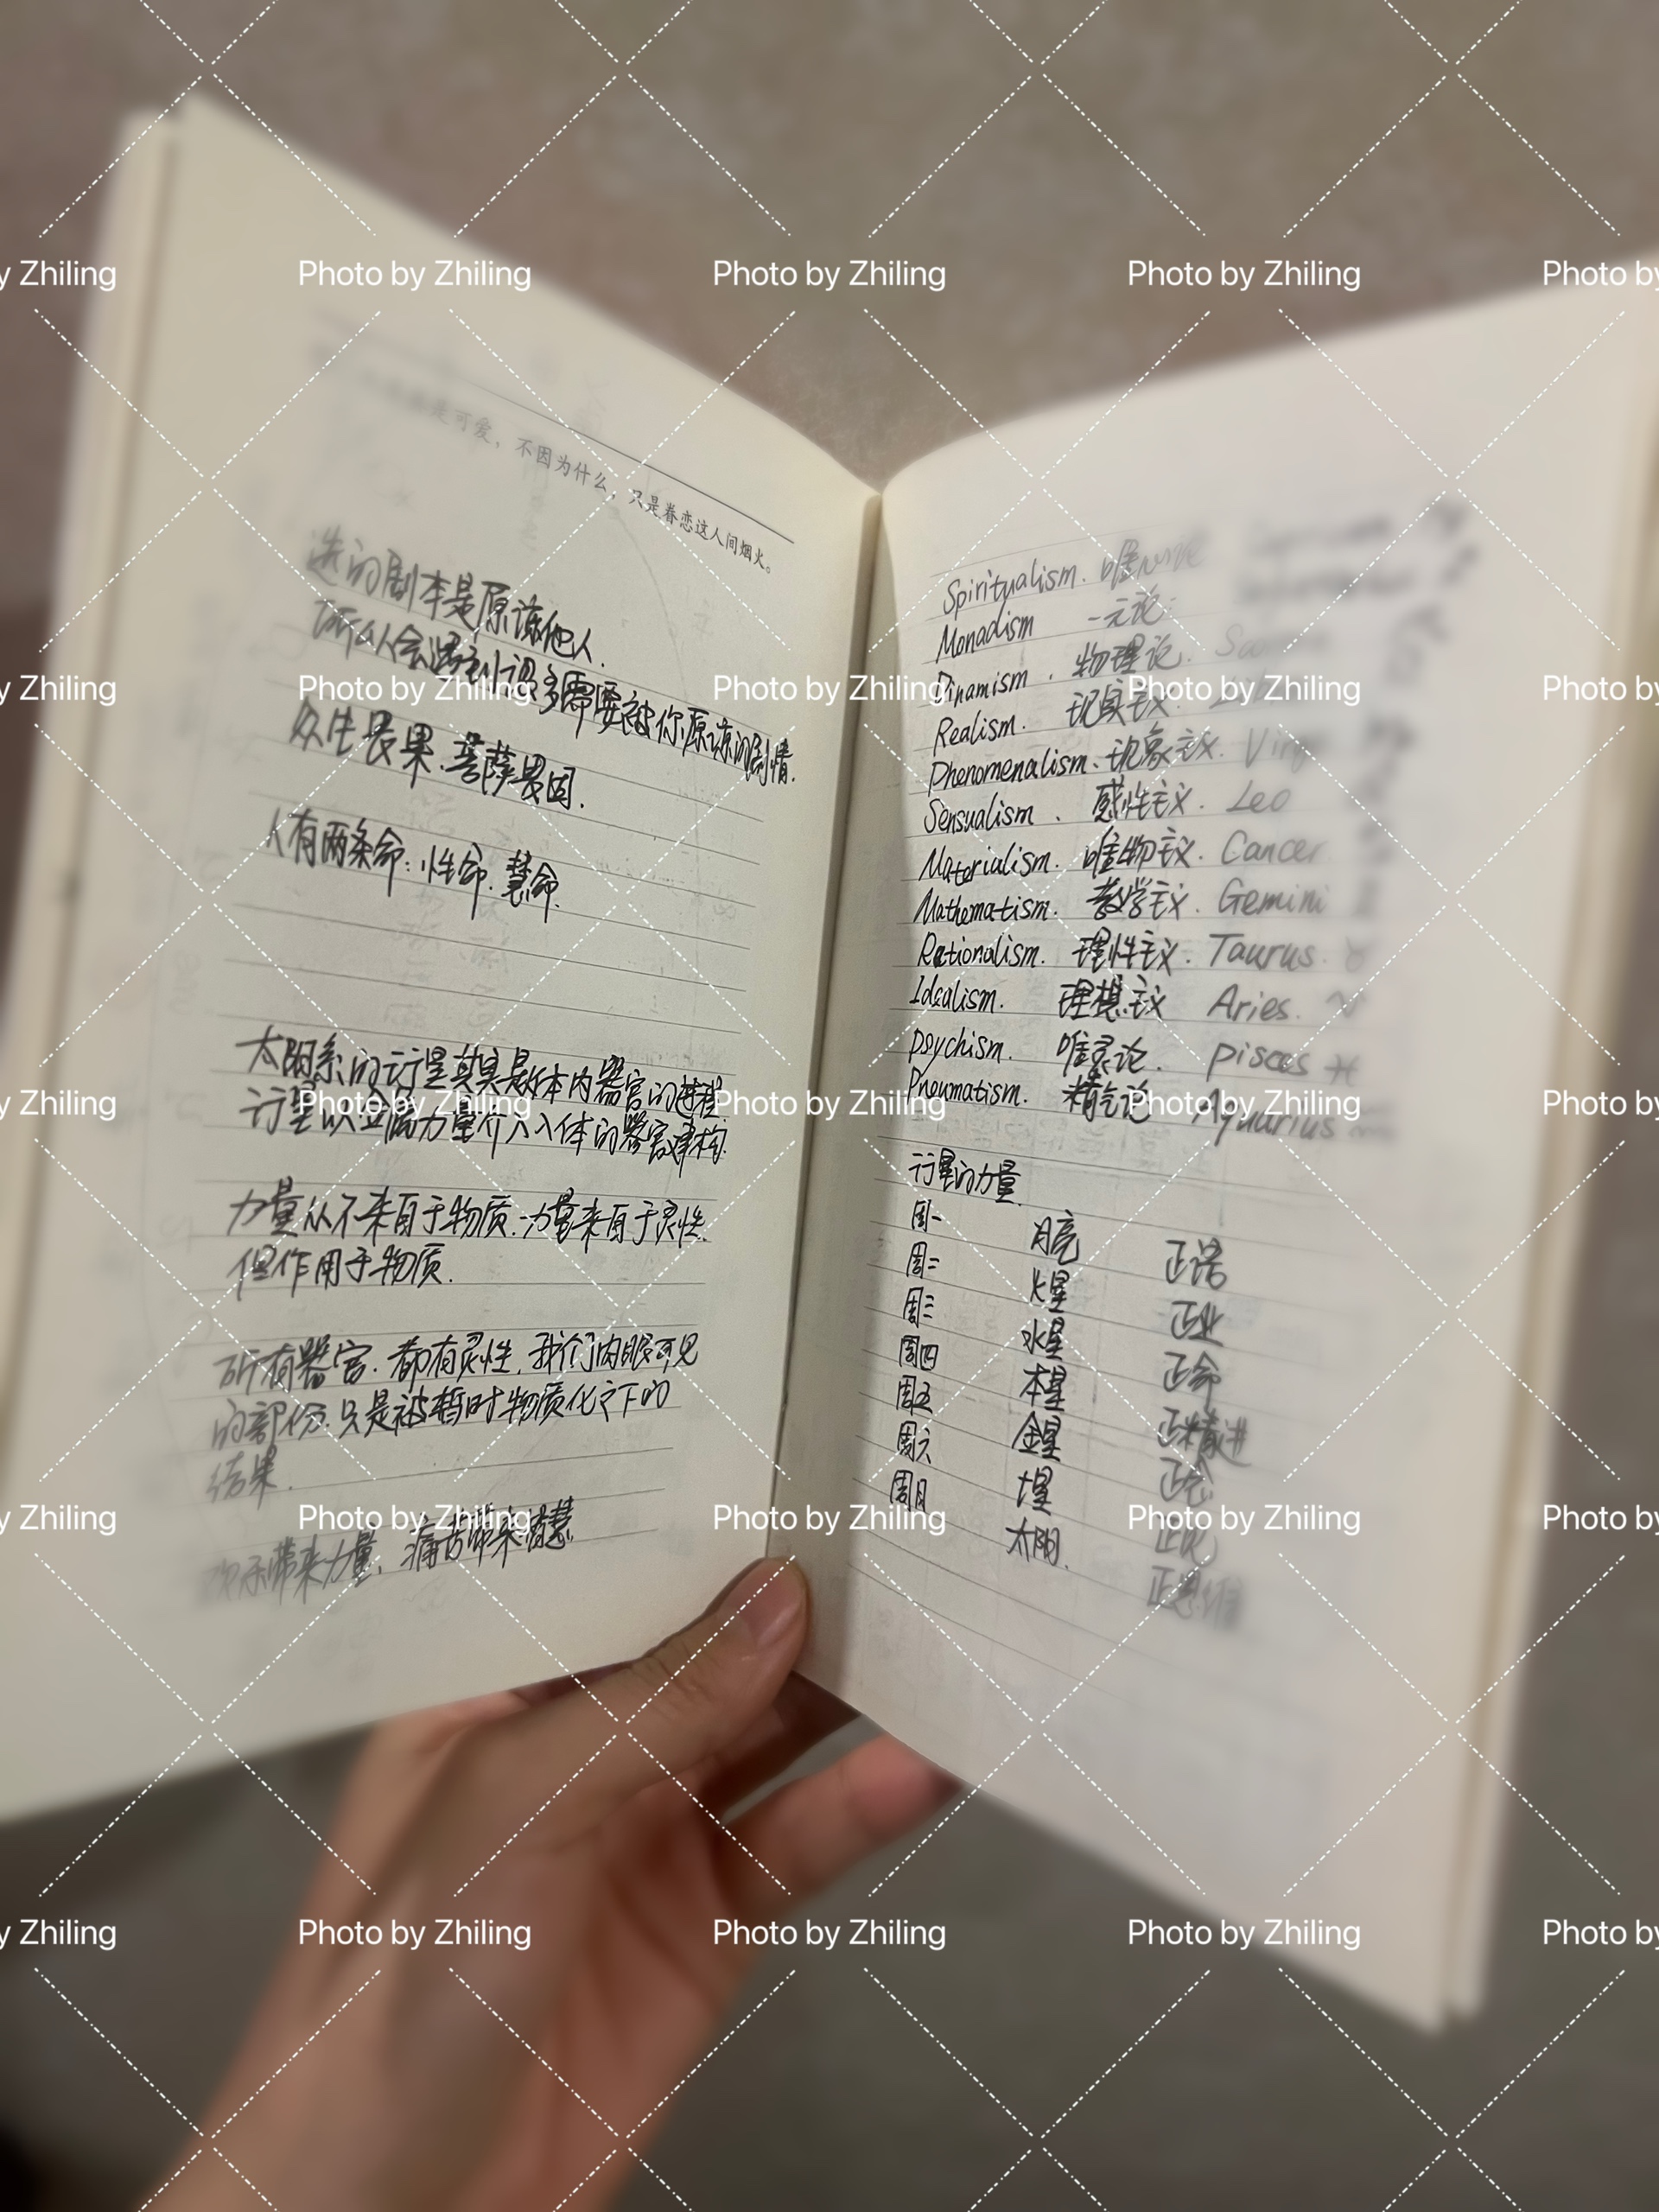 是可爱，不因为什么，只是眷恋这人间烟火。
选的剧本是原谅他人.
所以会遇到很多需要被你原谅的剧情.
众生畏果.菩萨畏因.
人有两条命：性命.慧命.
太阳系的行星其实是体内器官的进程
行星以金属力量介入人体的器官建构.
力量从不来自于物质.力量来自于灵性.
但作用于物质.
所有器官.都有灵性.我们肉眼可见
的部份.只是被暂时物质化之下的
结果.
带来力量，痛苦带来智慧.
Spiritualism. 唯
Monadism 一元论.
Dinamism. 物理论.
Realism. 现实主义.
Phenomenalism. 现象主义. Virgo
Sensualism. 感性主义. Leo
Materialism. 唯物主义. Cancer
Mathematism. 数学主义. Gemini
Rationalism. 理性主义. Taurus. ♉
Idealism. 理想主义 Aries. ♈
psychism. 唯灵论. pisces ♓
Pneumatism. 精气论 Aquarius
行星的力量.
周一 月亮 正语
周二 火星 正业
周三 水星 正命
周四 木星 正精进
周五 金星 正念
周六 土星 正见
周日 太阳. 正思维
Photo by Zhiling